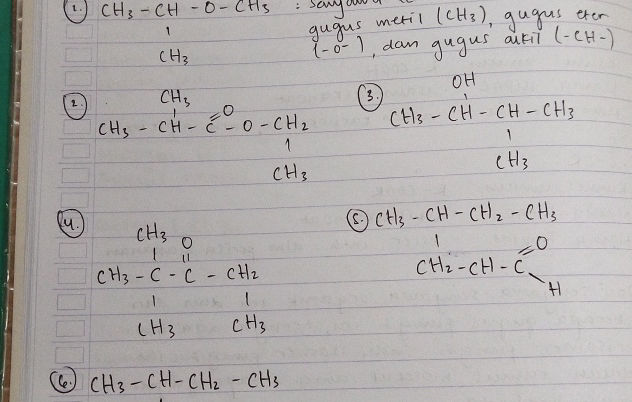 1. CH3 - CH - O - CH3 :
|
CH3
gugus metil (CH3), gugus eter
(-O-), dan gugus alkil (-CH-)
2. CH3
|
CH3 - CH - C =O - O - CH2
|
CH3
3. OH
|
CH3 - CH - CH - CH3
|
CH3
4. CH3 O
| ||
CH3 - C - C - CH2
| |
CH3 CH3
5. CH3 - CH - CH2 - CH3
|
CH2 - CH - C =O
\ H
6. CH3 - CH - CH2 - CH3